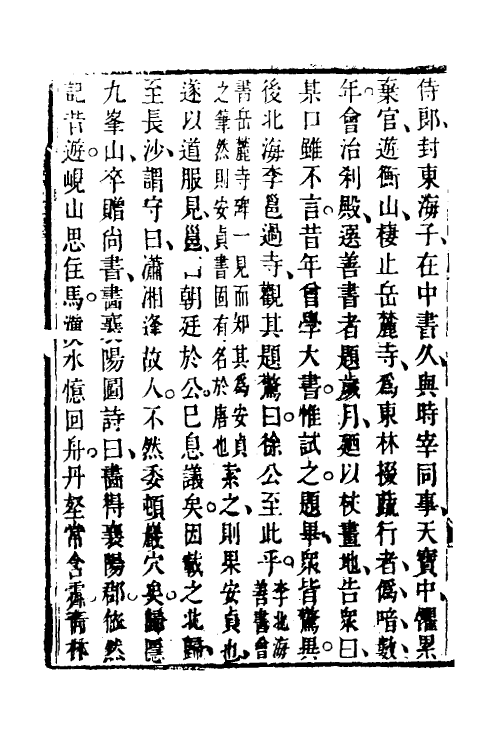 侍郎封東海子在中書久與時宰同事天寶中懼累
棄官遊衡山棲止岳麓寺為東林掇蔬行者偽喑數
年會治刹殿選善書者題歲月廼以杖畫地告衆曰
某口雖不言昔年曾學大書惟試之題畢衆皆驚異
後北海李邕過寺觀其題驚曰徐公至此乎李北海善書曾
書岳麓寺碑一見而知其為安貞之筆然則安貞書固有名於唐也索之則果安貞也
遂以道服見邕曰朝廷於公已息議矣因載之北歸
至長沙謂守曰瀟湘逢故人不然委頓巖穴矣歸隱
九峯山卒贈尚書畵襄陽圖詩曰畵得襄陽郡依然
記昔遊峴山思住馬漢水憶回舟丹壑常含霽青林